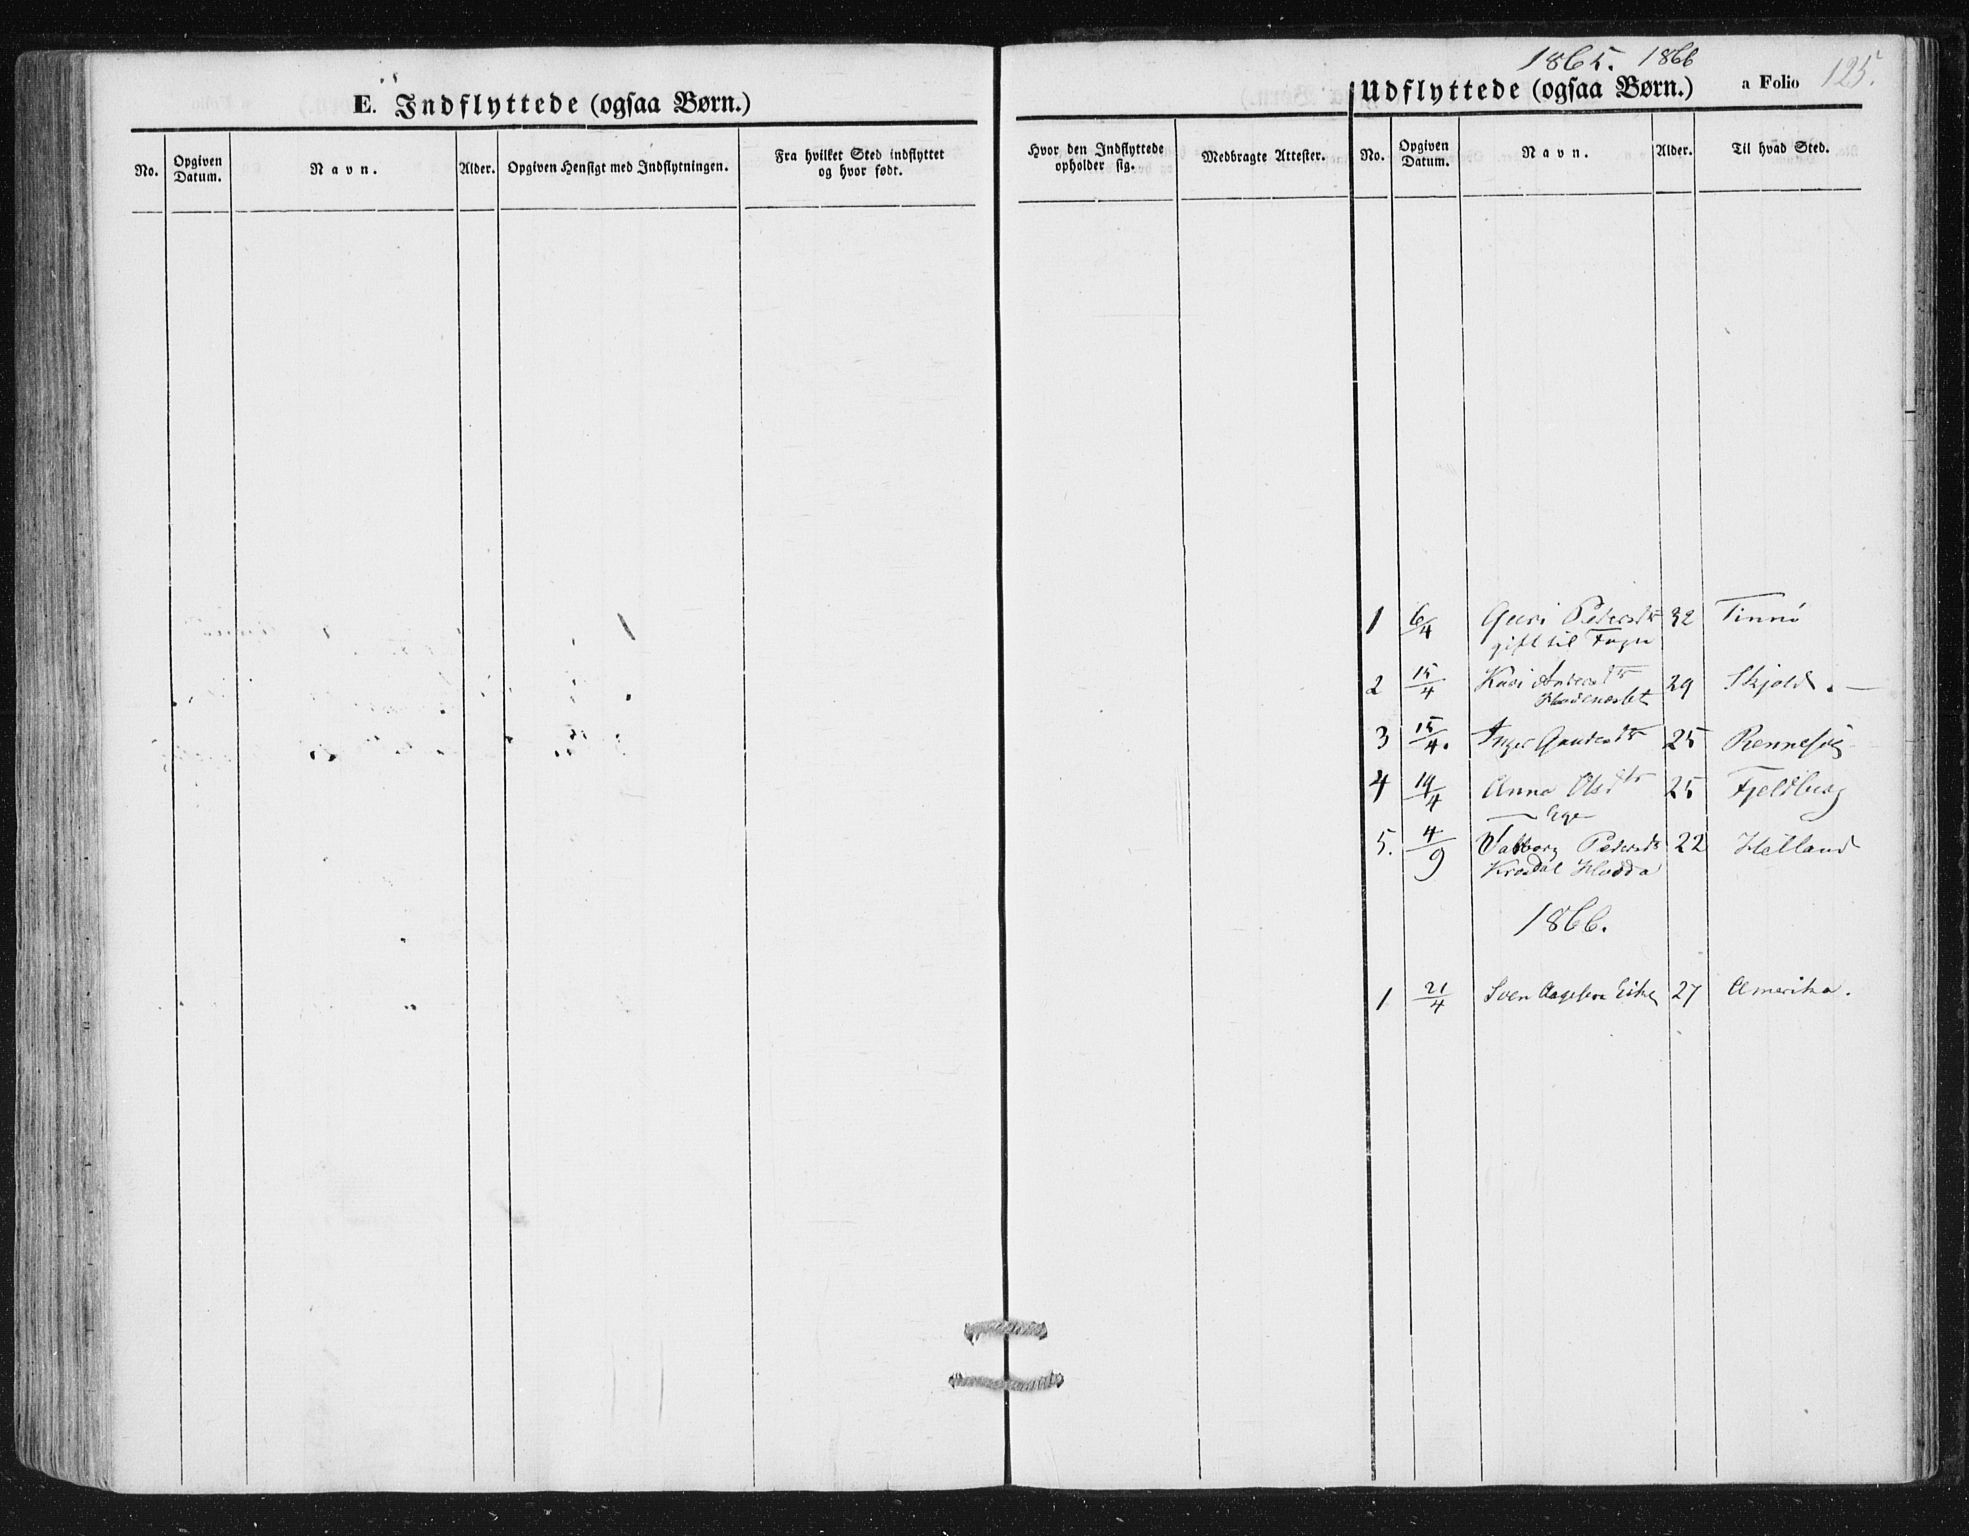 E. Indflyttede (ogsaa Børn.)
No.
Opgiven Datum.
Navn.
Alder.
Opgiven Hensigt med Indflytningen.
Fra hvilket Sted indflyttet og hvor født.
1865. 1866
Udflyttede (ogsaa Børn.)
a Folio 125.
Hvor den Indflyttede opholder sig.
Medbragte Attester.
No.
Opgiven Datum.
Navn.
Alder.
Til hvad Sted.
1 6/4 Guri Pedersdtr 32
gift til
2 15/4 Kari Andersdtr 29 Skjold. —
3 15/4. Inger 25 Rennesøe
4 14/4 Anna Olsdtr 25 Fjeldberg
Ege
5. 4/9 Valborg Pedersdtr 22 Helland
1866.
1 21/4 Sven Aagesen Eike 27 Amerika.